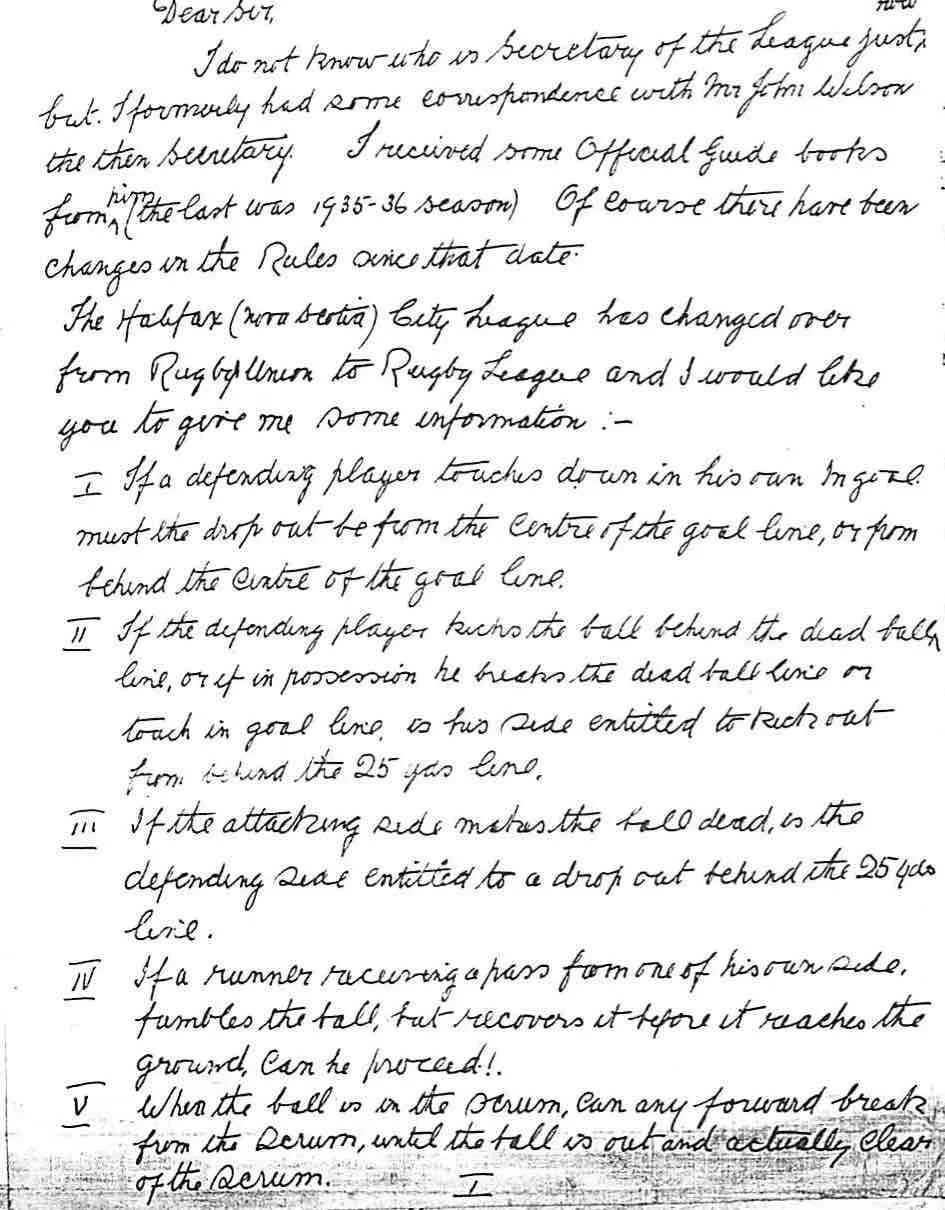 Dear Sir,
I do not know who is Secretary of the League just now
but. I formerly had some correspondence with Mr John Wilson
the then Secretary. I received some Official Guide books
from him (the last was 1935-36 season) Of course there have been
changes in the Rules since that date.
The Halifax (Nova Scotia) City League has changed over
from Rugby Union to Rugby League and I would like
you to give me some information :-
I If a defending player touches down in his own In goal.
must the drop out be from the centre of the goal line, or from
behind the centre of the goal line.
II If the defending player kicks the ball behind the dead ball
line, or if in possession he breaks the dead ball line or
touch in goal line, is his side entitled to kick out
from behind the 25 yds line.
III If the attacking side makes the ball dead, is the
defending side entitled to a drop out behind the 25 yds
line.
IV If a runner receiving a pass from one of his own side,
fumbles the ball, but recovers it before it reaches the
ground, Can he proceed!.
V When the ball is in the scrum, can any forward break
from the scrum, until the ball is out and actually clear
of the scrum. I